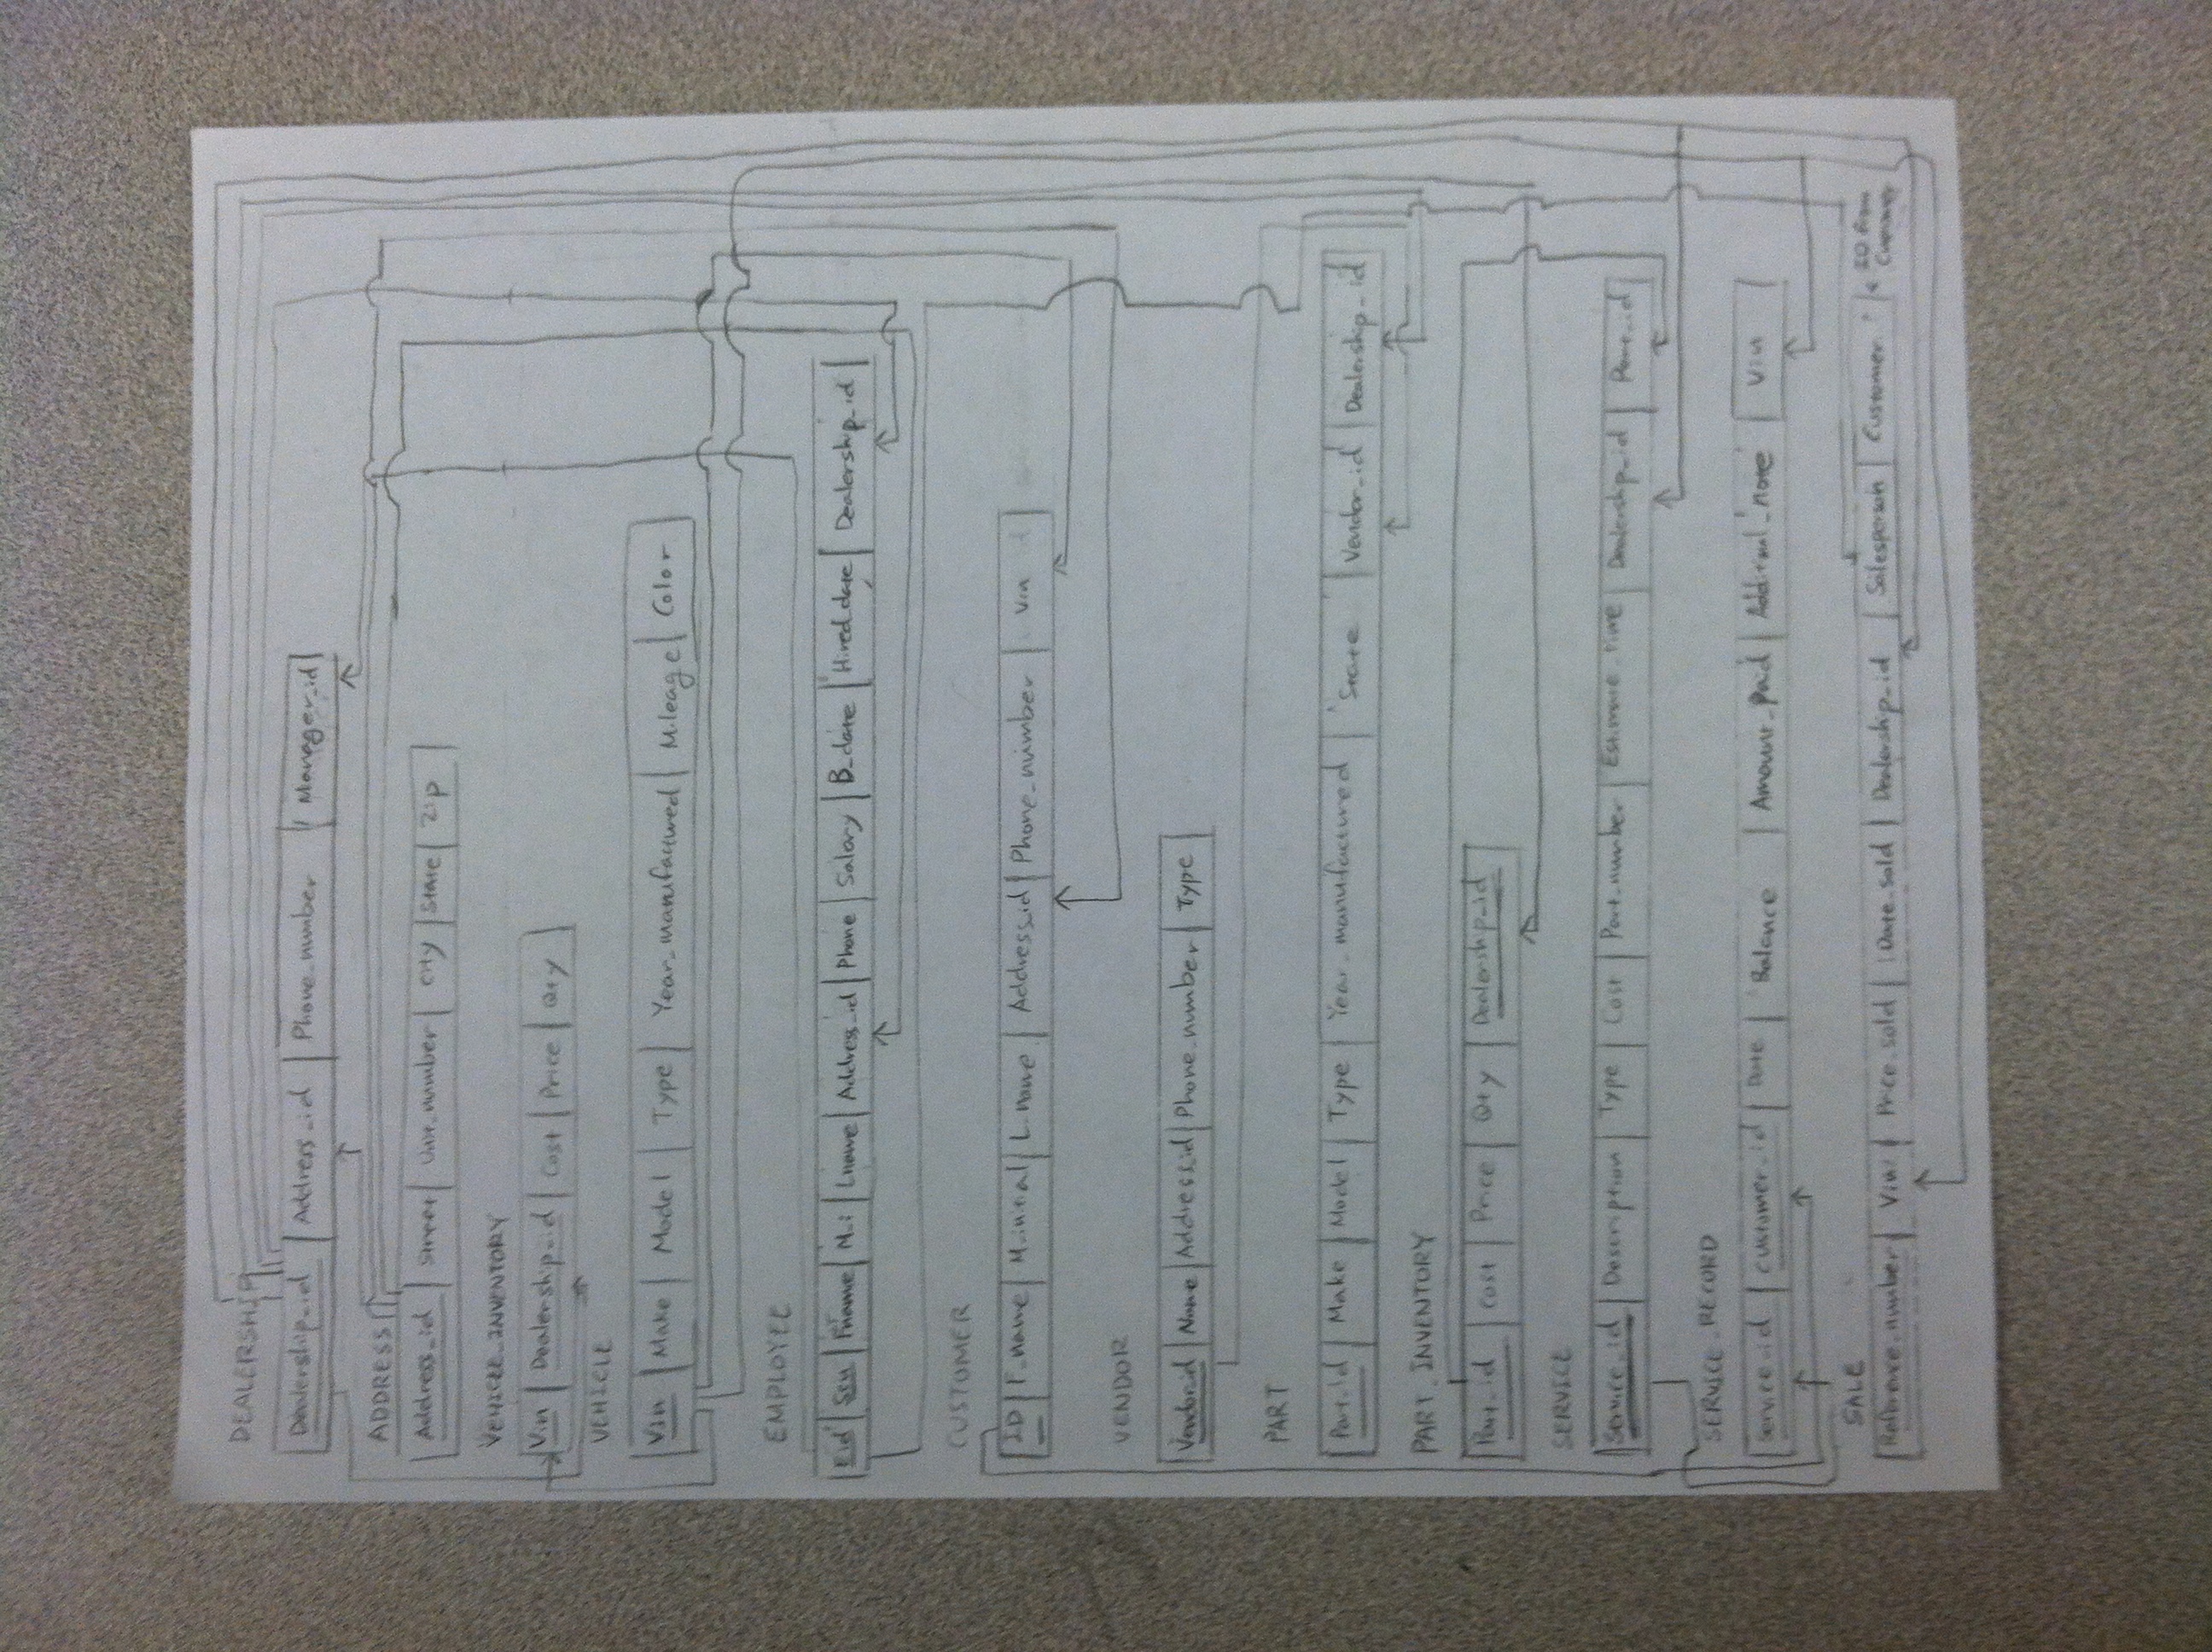 DEALERSHIP
Dealership_id Address_id Phone_number Manager_id
ADDRESS
Address_id Street Unit_number City State Zip
VEHICLE_INVENTORY
Vin Dealership_id Cost Price Qty
VEHICLE
Vin Make Model Type Year_manufactured Mileage Color
EMPLOYEE
Eid Ssn Fname M_i Lname Address_id Phone Salary B_date Hired_date Dealership_id
CUSTOMER
ID F_name M_initial L_name Address_id Phone_number Vin
VENDOR
Vendor_id Name Address_id Phone_number Type
PART
Part_id Make Model Type Year_manufactured State Vendor_id Dealership_id
PART_INVENTORY
Part_id Cost Price Qty Dealership_id
SERVICE
Service_id Description Type Cost Part_number Estimate_time Dealership_id Part_id
SERVICE_RECORD
Service_id Customer_id Date Balance Amount_paid Vin
SALE
Reference_number Vin Price_sold Date_sold Dealership_id Salesperson Customer ID from
Customer